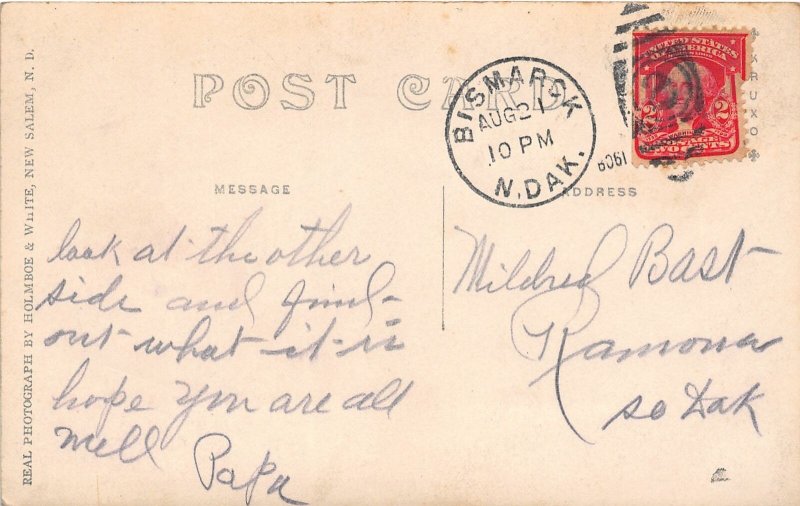 POST CARD
BISMARCK
AUG 21
10 PM
N. DAK.
1908
UNITED STATES
OF AMERICA
2 2
TWO CENTS
KRUXO
MESSAGE
ADDRESS
look at the other
side and find
out what it is
hope you are all
well
Papa
Mildred Bast
Ramona
So Dak
REAL PHOTOGRAPH BY HOLMBOE & WHITE, NEW SALEM, N. D.